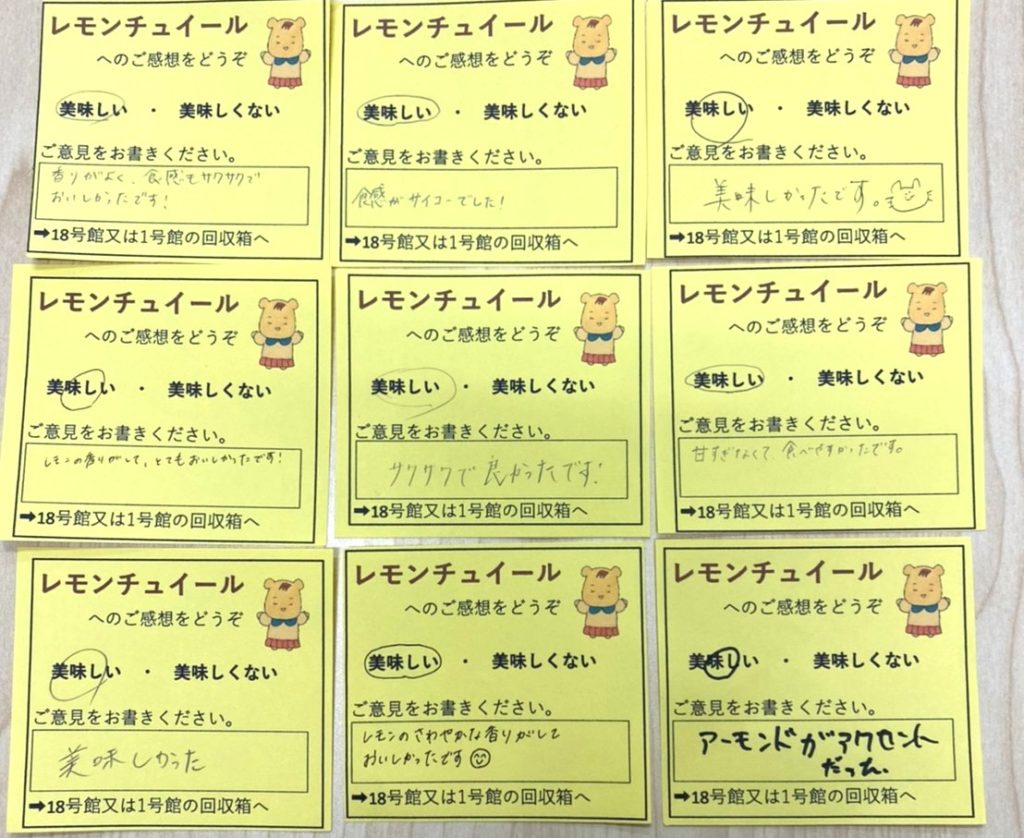 レモンチュイール
へのご感想をどうぞ
美味しい ・ 美味しくない
ご意見をお書きください。
香りがよく、食感もサクサクで
おいしかったです!
➡18号館又は1号館の回収箱へ
レモンチュイール
へのご感想をどうぞ
美味しい ・ 美味しくない
ご意見をお書きください。
食感がサイコーでした!
➡18号館又は1号館の回収箱へ
レモンチュイール
へのご感想をどうぞ
美味しい ・ 美味しくない
ご意見をお書きください。
美味しかったです。
➡18号館又は1号館の回収箱へ
レモンチュイール
へのご感想をどうぞ
美味しい ・ 美味しくない
ご意見をお書きください。
レモンの香りがして、とてもおいしかったです!
➡18号館又は1号館の回収箱へ
レモンチュイール
へのご感想をどうぞ
美味しい ・ 美味しくない
ご意見をお書きください。
サクサクで良かったです!
➡18号館又は1号館の回収箱へ
レモンチュイール
へのご感想をどうぞ
美味しい ・ 美味しくない
ご意見をお書きください。
甘すぎなくて、食べやすかったです。
➡18号館又は1号館の回収箱へ
レモンチュイール
へのご感想をどうぞ
美味しい ・ 美味しくない
ご意見をお書きください。
美味しかった
➡18号館又は1号館の回収箱へ
レモンチュイール
へのご感想をどうぞ
美味しい ・ 美味しくない
ご意見をお書きください。
レモンのさわやかな香りがして
おいしかったです☺
➡18号館又は1号館の回収箱へ
レモンチュイール
へのご感想をどうぞ
美味しい ・ 美味しくない
ご意見をお書きください。
アーモンドがアクセント
だった。
➡18号館又は1号館の回収箱へ